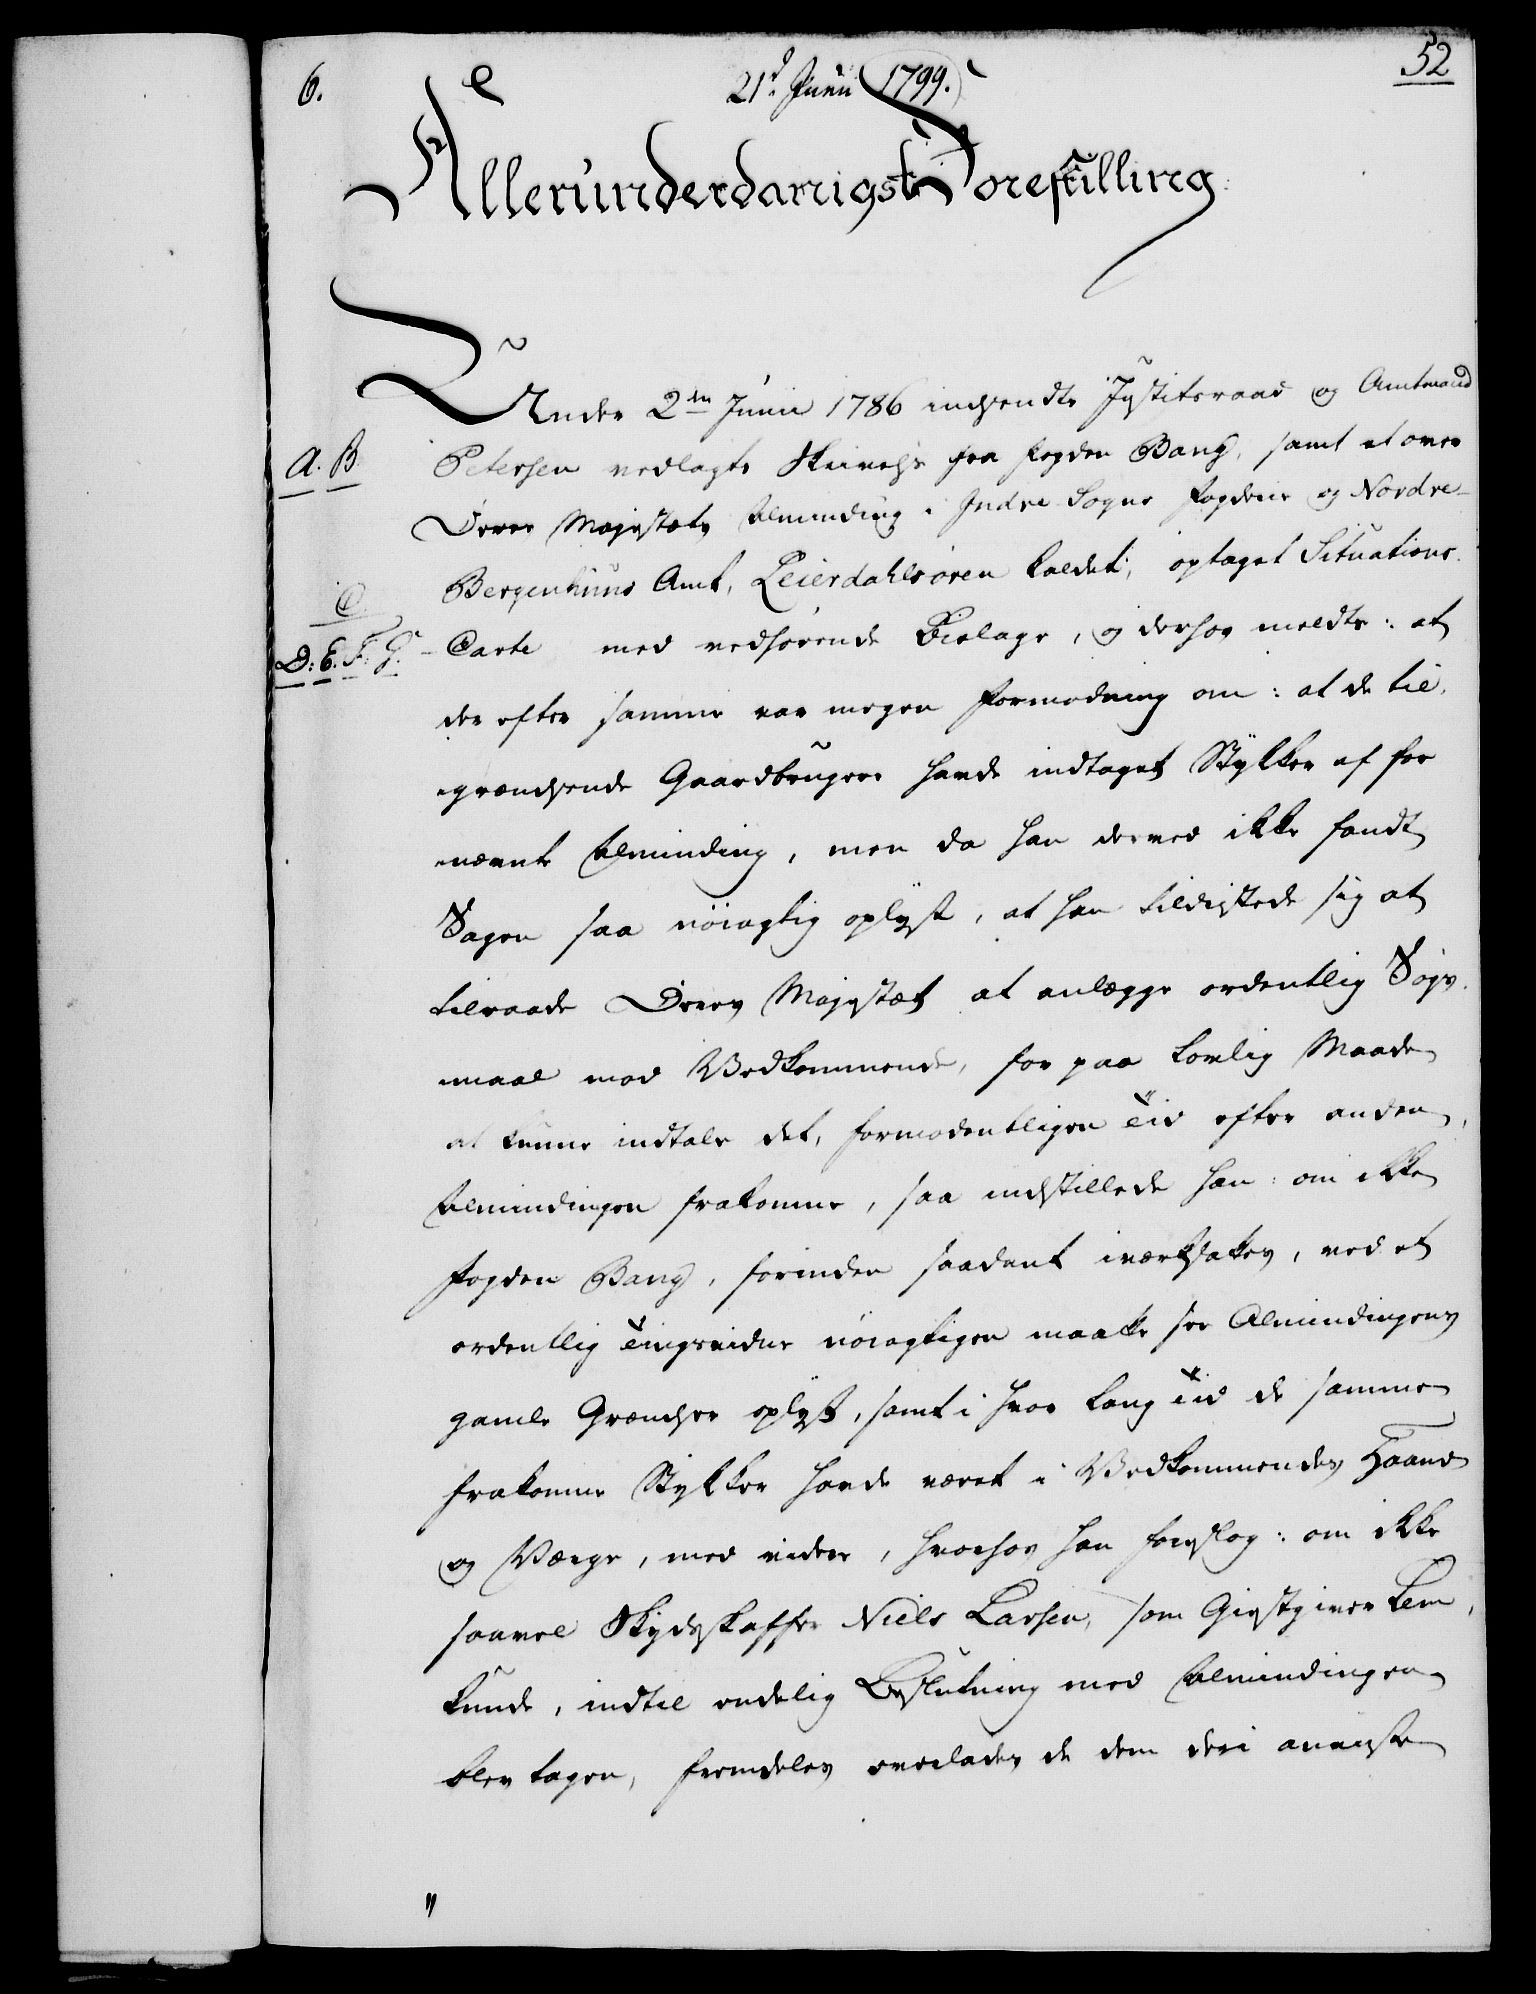 52
6.
21d Junii 1799.
Allerunderdanigst Forestilling
Under 2den Junii 1786 indsendte Justitsraad og Amtmand
A. B. Petersen vedlagte Skrivelse fra Fogden Bang, samt et over
Deres Majestæts Alminding i Indre Sogns Fogderie og Nordre-
Bergenhuus Amt, Leierdahlsøren kaldet, optaget Situations-
C.
D: E. F: G. Carte med vedhørende Bielage, og derhos meldte: at
der efter samme var megen Formodning om: at de til-
grændsende Gaardbrugere havde indtaget Stykker af for
nævnte Alminding, men da han derved ikke fandt
Sagen saa nöiagtig oplyst, at han tildristede sig at
tilraade Deres Majestæt at anlægge ordentlig Søgs-
maal mod Vedkommende, for paa lovlig Maade
at kunne indtale det, formodentligen Tid efter anden,
Almindingen frakomne, saa indstillede han: om ikke
Fogden Bang, forinden saadant iværksattes, ved et
ordentlig Tingsvidne nöiagtigen maatte see Almindingens
gamle Grændser oplyst, samt i hvor lang Tid de samme
frakomne Stykker havde været i Vedkommendes Haand
og Værge, med videre, hvorhos han foreslog: om ikke
saavel Skydsskaffer Niels Larsen, som Giestgiver Lem,
kunde, indtil endelig Beslutning med Almindingen
blev tagen, fremdeles overlades de dem deri anviiste
"